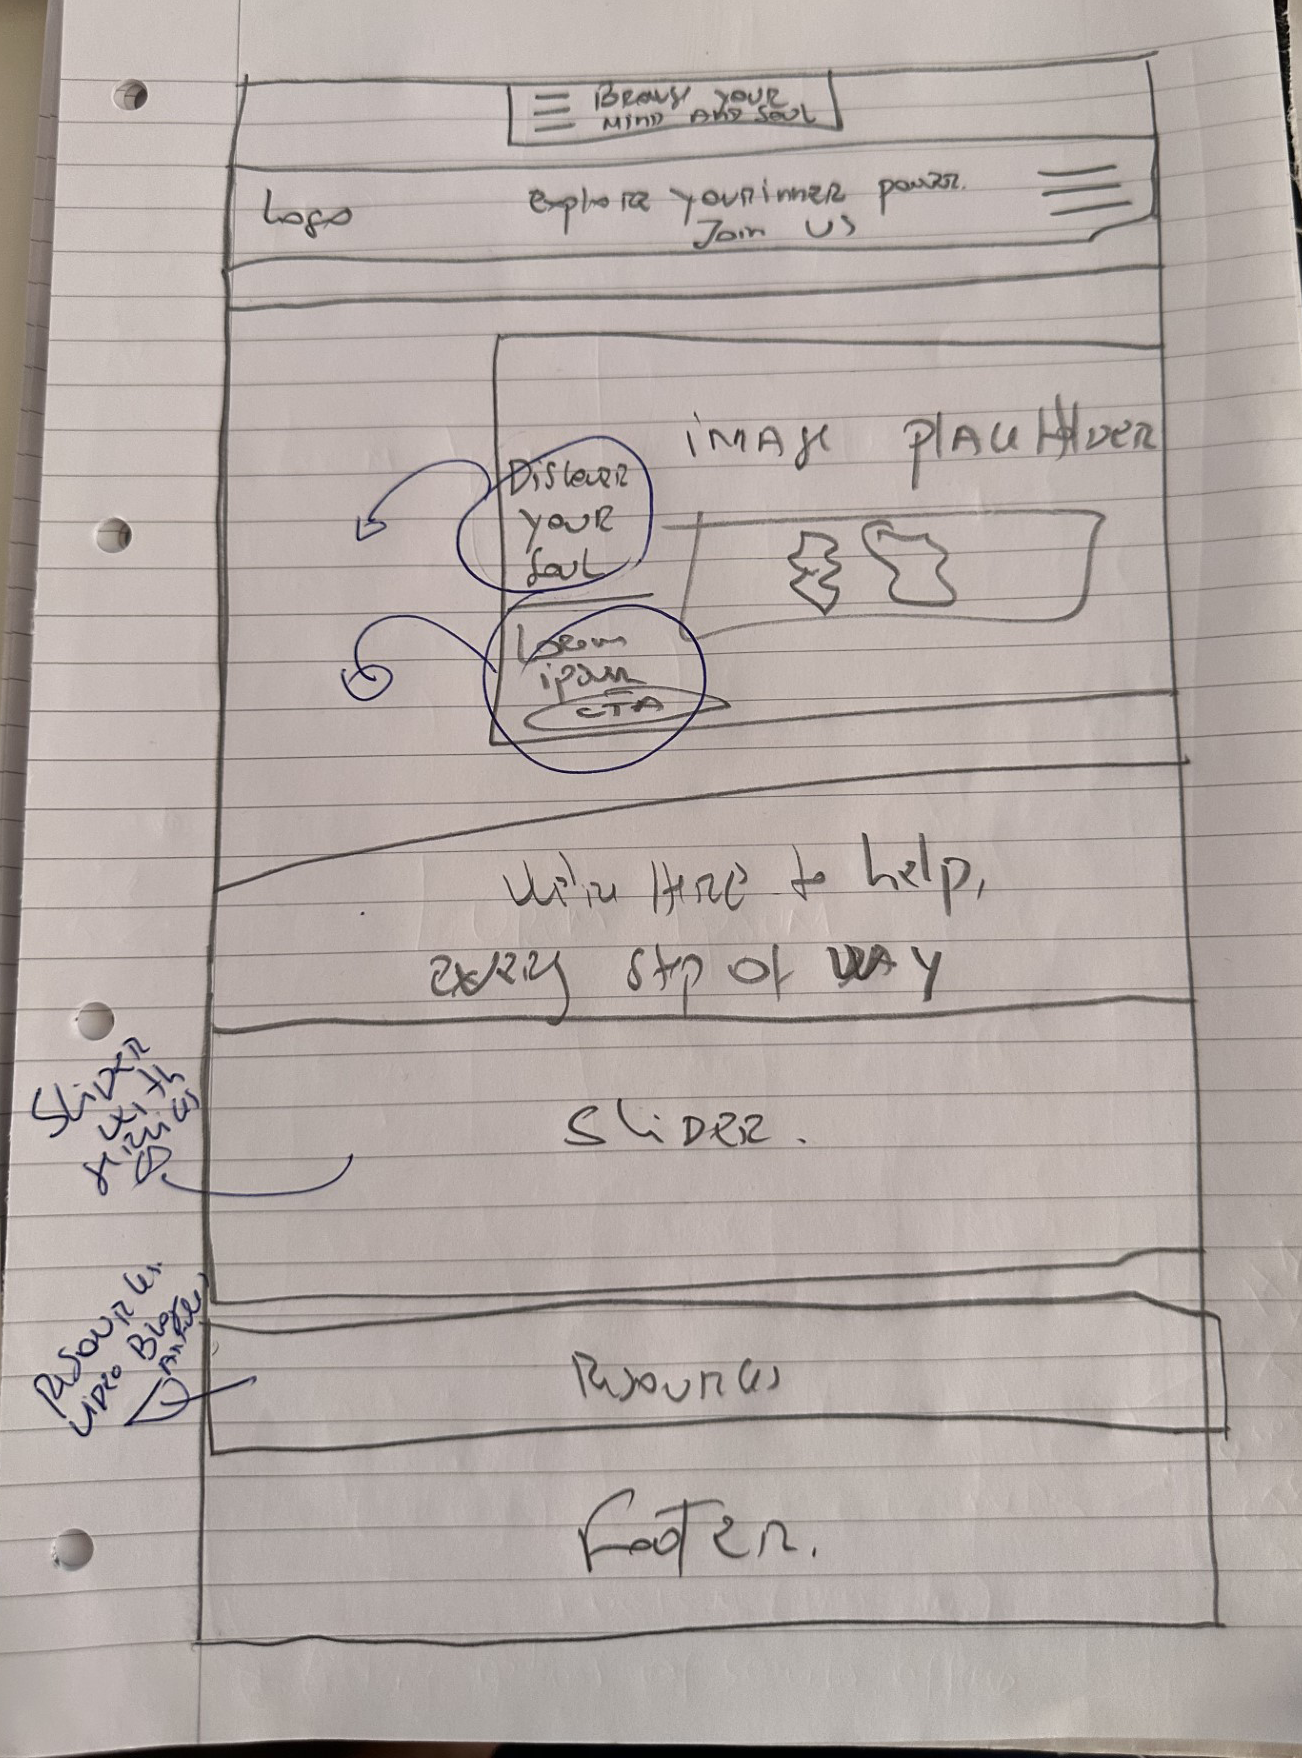 Browse your
mind and soul
Logo
Explore your inner power.
Join us
image placeholder
Discover
your
soul
Lorem
ipsum
CTA
We're here to help,
every step of way
Slider
with
services
Slider.
Resources
Video Blog
Articles
Resources
Footer.